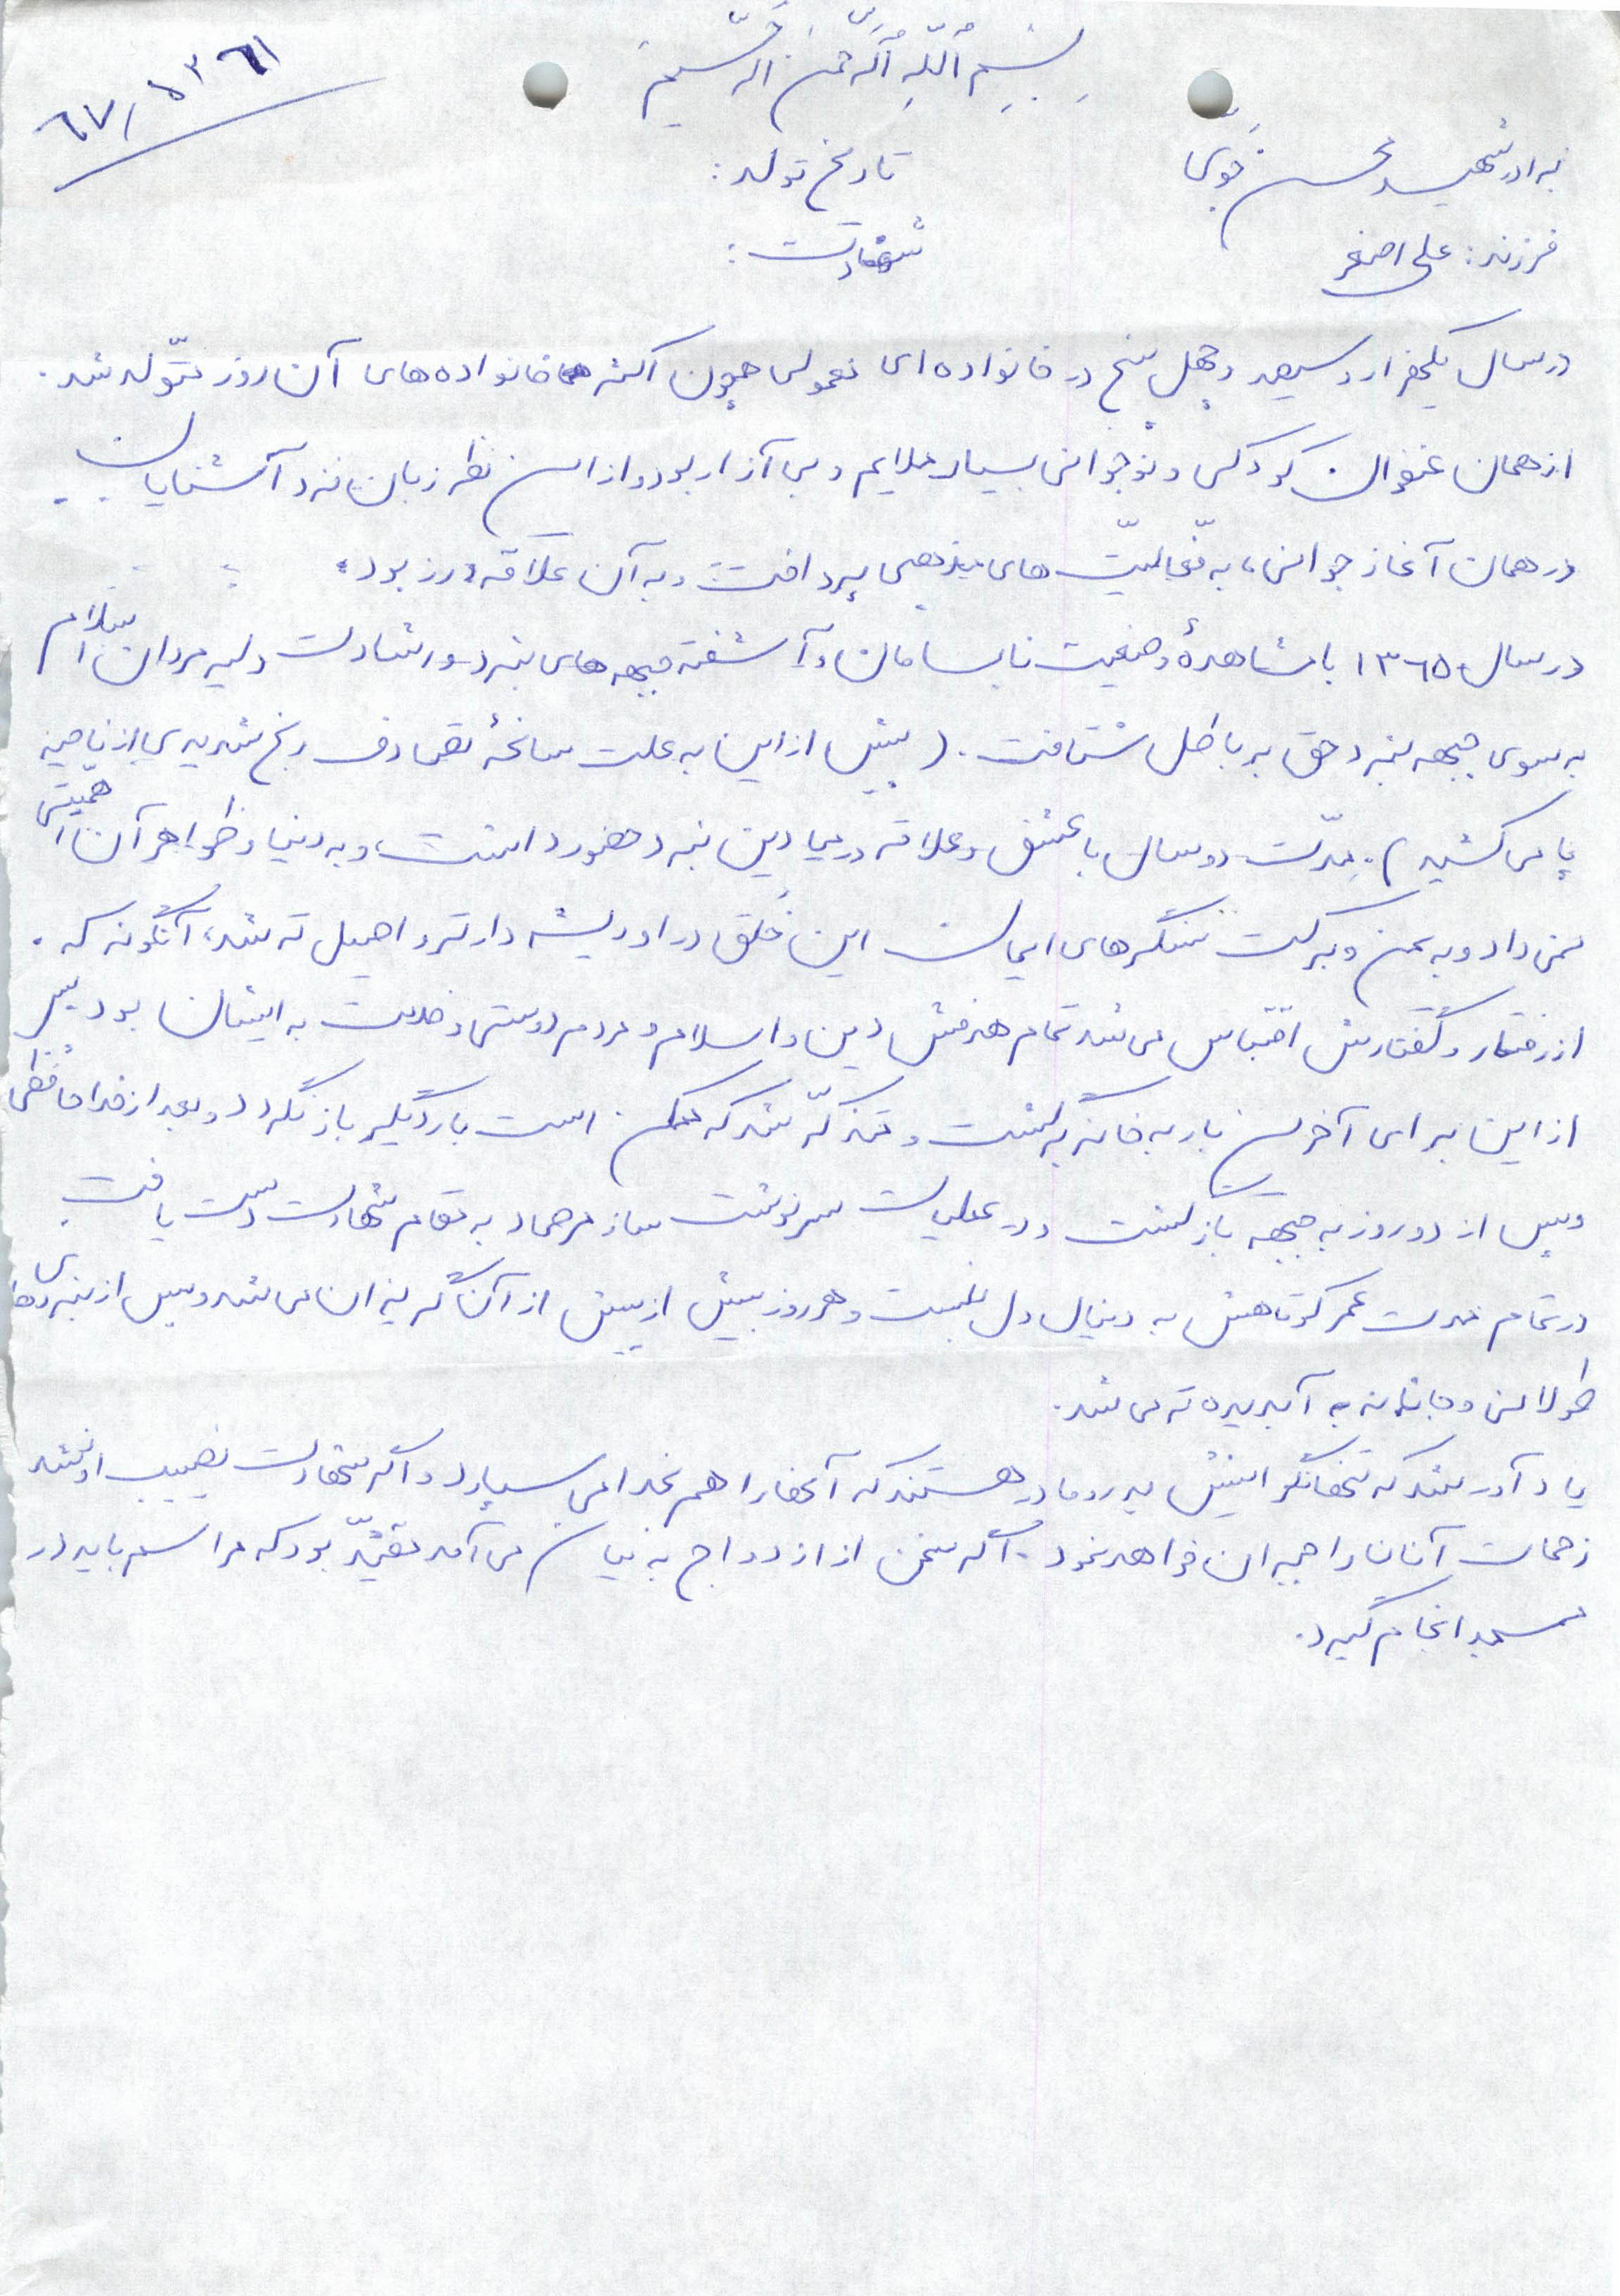 بِسْمِ اللّهِ الرَّحْمنِ الرَّحیمِ
۶۷/۵۳۶۱
برادر شهید محسن قوی
تاریخ تولد:
فرزند: علی اصغر
شهادت:
در سال یکهزار و سیصد و چهل پنج در خانواده ای معمولی چون اکثر خانواده های آن روز متولّد شد.
از همان عنفوان کودکی و نوجوانی بسیار ملایم و بی آزار بود و از این نظر زبان زد آشنایان
در همان آغاز جوانی، به فعّالیّت های مذهبی پرداخت و به آن علاقه ورز بود.
در سال ۱۳۶۵ با مشاهدهٔ وضعیت نابسامان و آشفته جبهه های نبرد و رشادت دلیر مردان اسلام
به سوی جبهه نبرد حق بر باطل شتافت. (پیش از این به علت سانحهٔ تصادف رنج شدیدی از ناحیه
پا می کشید). مدّت دو سال با عشق و علاقه در میادین نبرد حضور داشت و به دنیا و ظواهر آن اهمیّتی
نمی داد و به یمن و برکت سنگرهای ایمان این خُلق در او ریشه دارتر و اصیل تر شد، آنگونه که
از رفتار و گفتارش اقتباس می شد تمام هدفش دین و اسلام و مردم دوستی و خدمت به ایشان بود پس
از این برای آخرین بار به خانه برگشت و متذکّر شد که ممکن است بار دیگر باز نگردد و بعد از خداحافظی
و پس از دو روز به جبهه بازگشت و در عملیات سرنوشت ساز مرصاد به مقام شهادت دست یافت
در تمام مدت عمر کوتاهش به دنیا دل نبست و هر روز بیش از پیش از آن گریزان می شد و پس از نبردهای
طولانی و جانانه آبدیده تر می شد.
یاد آور شد که تنها نگرانیش پدر و مادر هستند که آنها را هم بخدا می سپارد و اگر شهادت نصیب او نشد
زحمات آنان را جبران خواهد نمود. اگر سخن از ازدواج به میان می آمد مقیّد بود که مراسم باید در
مسجد انجام گیرد.